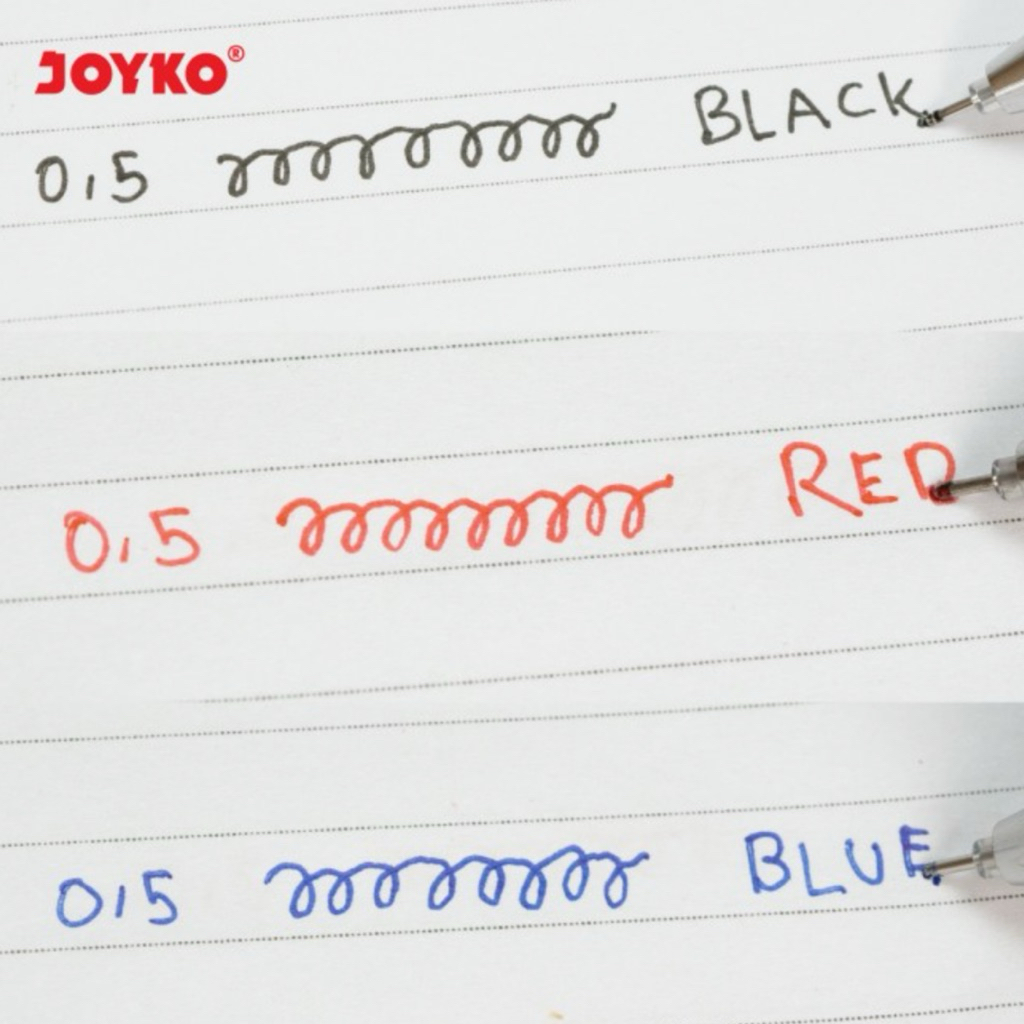 JOYKO®
0,5 BLACK
0,5 RED
0,5 BLUE